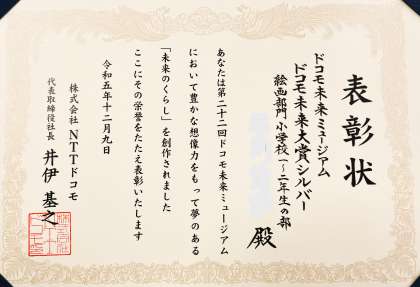 表彰状
ドコモ未来ミュージアム
ドコモ未来大賞シルバー
絵画部門 小学校一~二年生の部
殿
あなたは第二十二回ドコモ未来ミュージアム
において豊かな想像力をもって夢のある
「未来のくらし」を創作されました
ここにその栄誉をたたえ表彰いたします
令和五年十二月九日
株式会社 NTTドコモ
代表取締役社長 井伊 基之